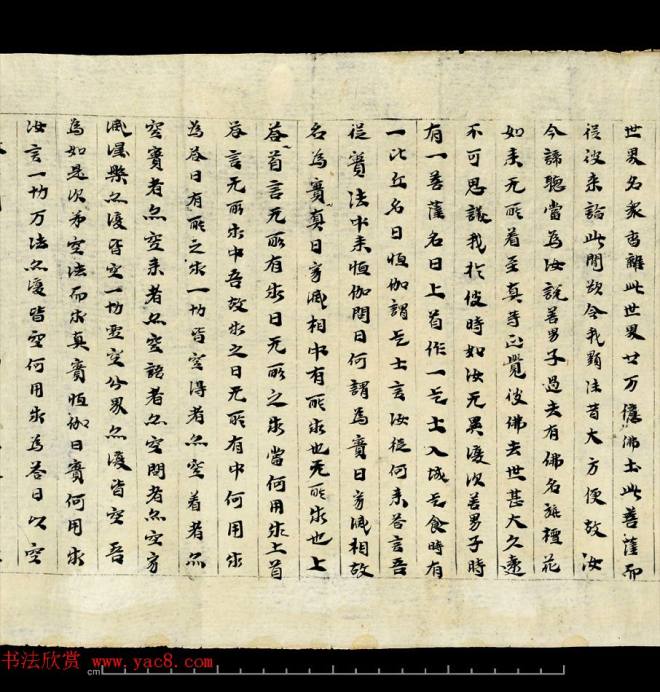 世界名衆香離此世界廿万億佛土此菩薩而
從彼来詣此間欲令我顯法昔大方便故汝
今諦聽當為汝說善男子過去有佛名旃檀花
如来无所着至真等正覺彼佛去世甚大久遠
不可思議我於彼時如汝无異復次善男子時
有一菩薩名曰上首作一乞士入城乞食時有
一比丘名曰恒伽謂乞士言汝從何来荅言吾
從實法中来恒伽問曰何謂為實曰寂滅相故
名為實真曰寂滅相中有所求也无所求也上
荅首言无所有求曰无所之求當何用求上首
荅言无所求中吾故求之曰无所有中何用求
為荅曰有所之求一切皆空得者亦空着者亦
空實者亦空来者亦空語者亦空問者亦空寂
滅涅槃亦復皆空一切虛空分界亦復皆空吾
為如是次第空法而求真實恒伽曰實何用求
汝言一切万法亦復皆空何用求為荅曰以空
书法欣赏 www.yac8.com
cm